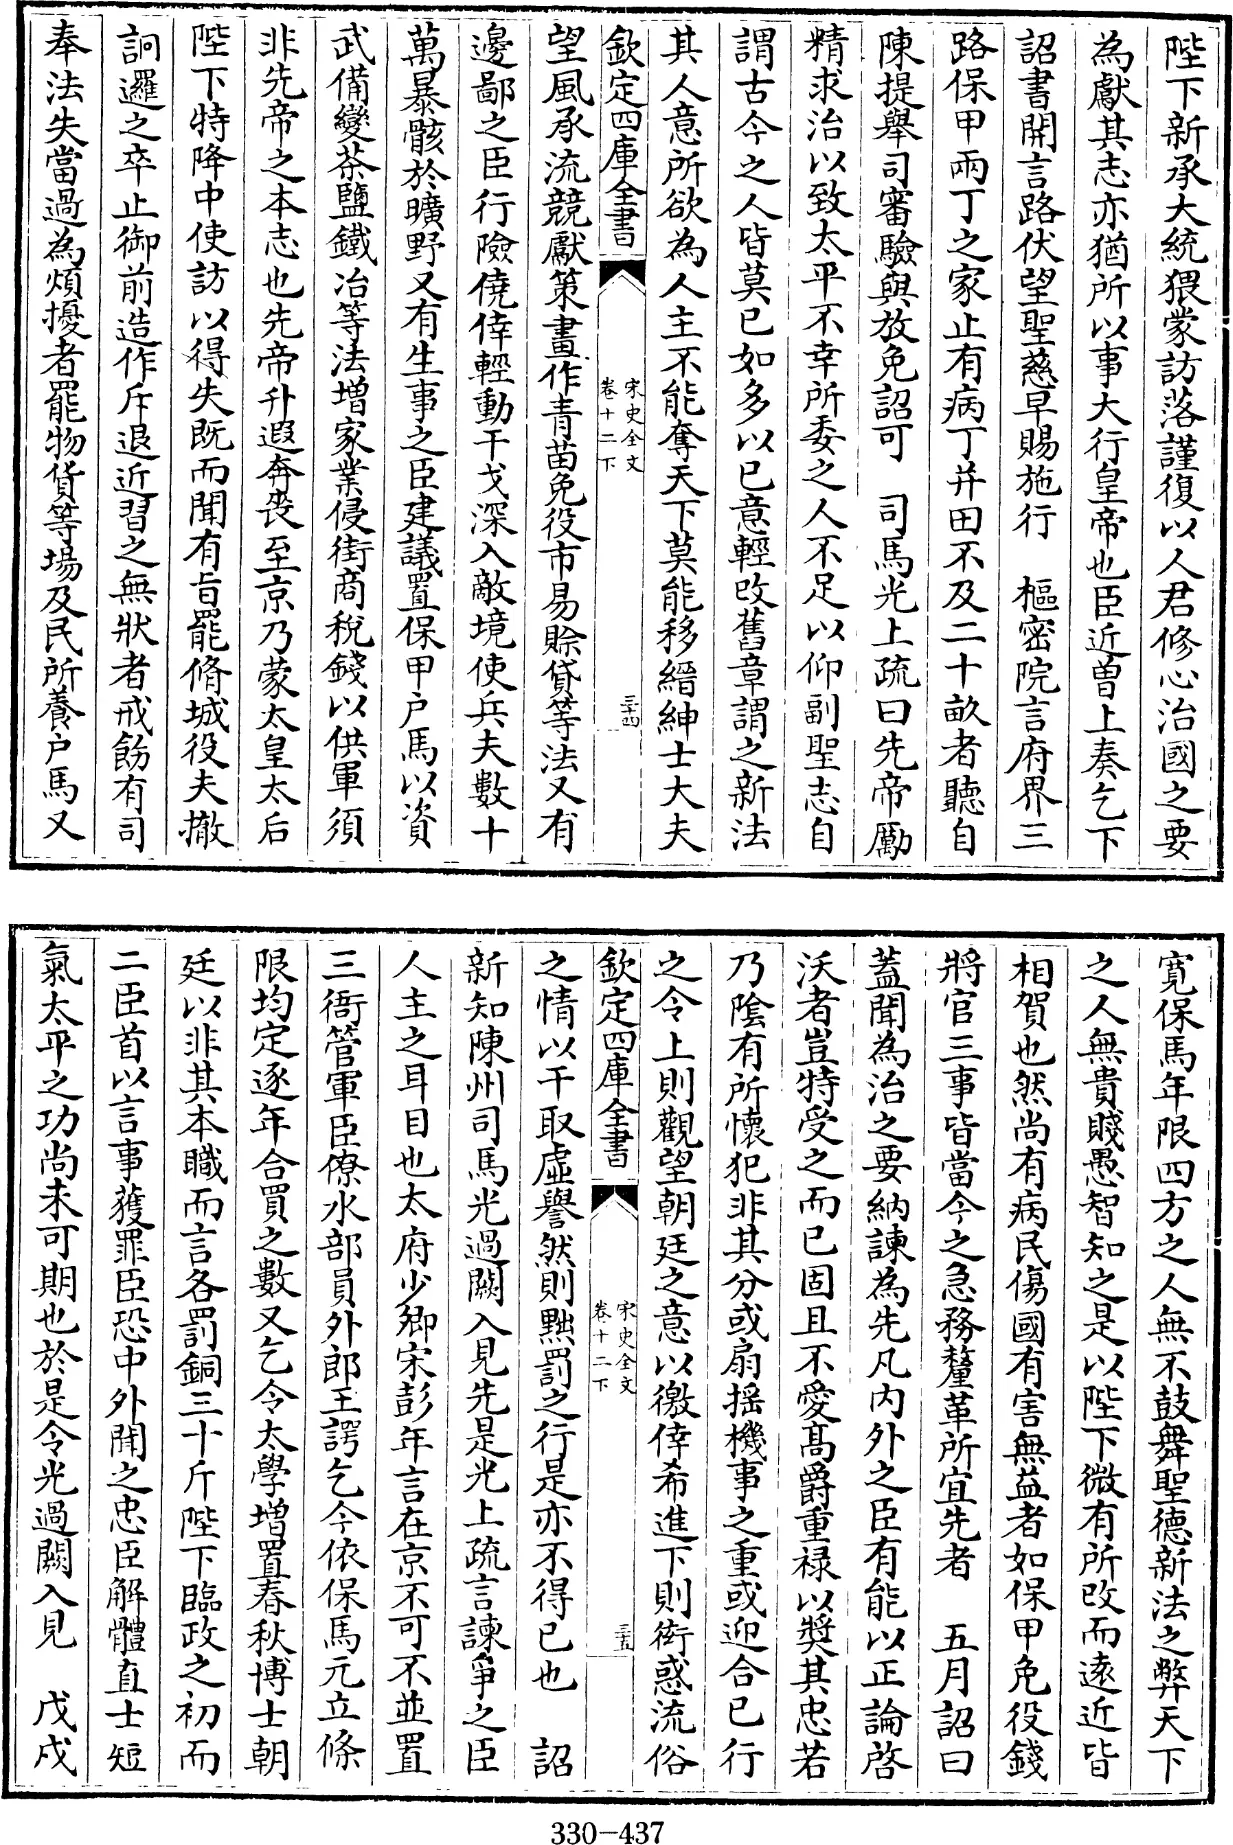 陛下新承大統猥蒙訪落謹復以人君修心治國之要
為獻其志亦猶所以事大行皇帝也臣近曾上奏乞下
詔書開言路伏望聖慈早賜施行　樞密院言府界三
路保甲兩丁之家止有病丁并田不及二十畝者聽自
陳提舉司審驗與放免詔可　司馬光上疏曰先帝勵
精求治以致太平不幸所委之人不足以仰副聖志自
謂古今之人皆莫已如多以已意輕改舊章謂之新法
其人意所欲為人主不能奪天下莫能移縉紳士大夫
欽定四庫全書
宋史全文
卷十二下
三十四
望風承流競獻策畫作青苗免役市易賒貸等法又有
邊鄙之臣行險僥倖輕動干戈深入敵境使兵夫數十
萬暴骸於曠野又有生事之臣建議置保甲户馬以資
武備變茶鹽鐵冶等法增家業侵街商税錢以供軍須
非先帝之本志也先帝升遐奔喪至京乃蒙太皇太后
陛下特降中使訪以得失既而聞有旨罷脩城役夫撤
詗邏之卒止御前造作斥退近習之無狀者戒飭有司
奉法失當過為煩擾者罷物貨等場及民所養户馬又
寛保馬年限四方之人無不鼓舞聖德新法之弊天下
之人無貴賤愚智知之是以陛下微有所改而遠近皆
相賀也然尚有病民傷國有害無益者如保甲免役錢
將官三事皆當今之急務釐革所宜先者　五月詔曰
蓋聞為治之要納諫為先凡内外之臣有能以正論啓
沃者豈特受之而已固且不愛髙爵重禄以奬其忠若
乃陰有所懷犯非其分或扇揺機事之重或迎合已行
之令上則觀望朝廷之意以徼倖希進下則衒惑流俗
欽定四庫全書
宋史全文
卷十二下
三十五
之情以干取虚譽然則黜罰之行是亦不得已也　詔
新知陳州司馬光過闕入見先是光上疏言諫爭之臣
人主之耳目也太府少卿宋彭年言在京不可不並置
三衙管軍臣僚水部員外郎王諤乞令依保馬元立條
限均定逐年合買之數又乞令太學增置春秋博士朝
廷以非其本職而言各罰銅三十斤陛下臨政之初而
二臣首以言事獲罪臣恐中外聞之忠臣解體直士短
氣太平之功尚未可期也於是令光過闕入見　戊戌
330-437